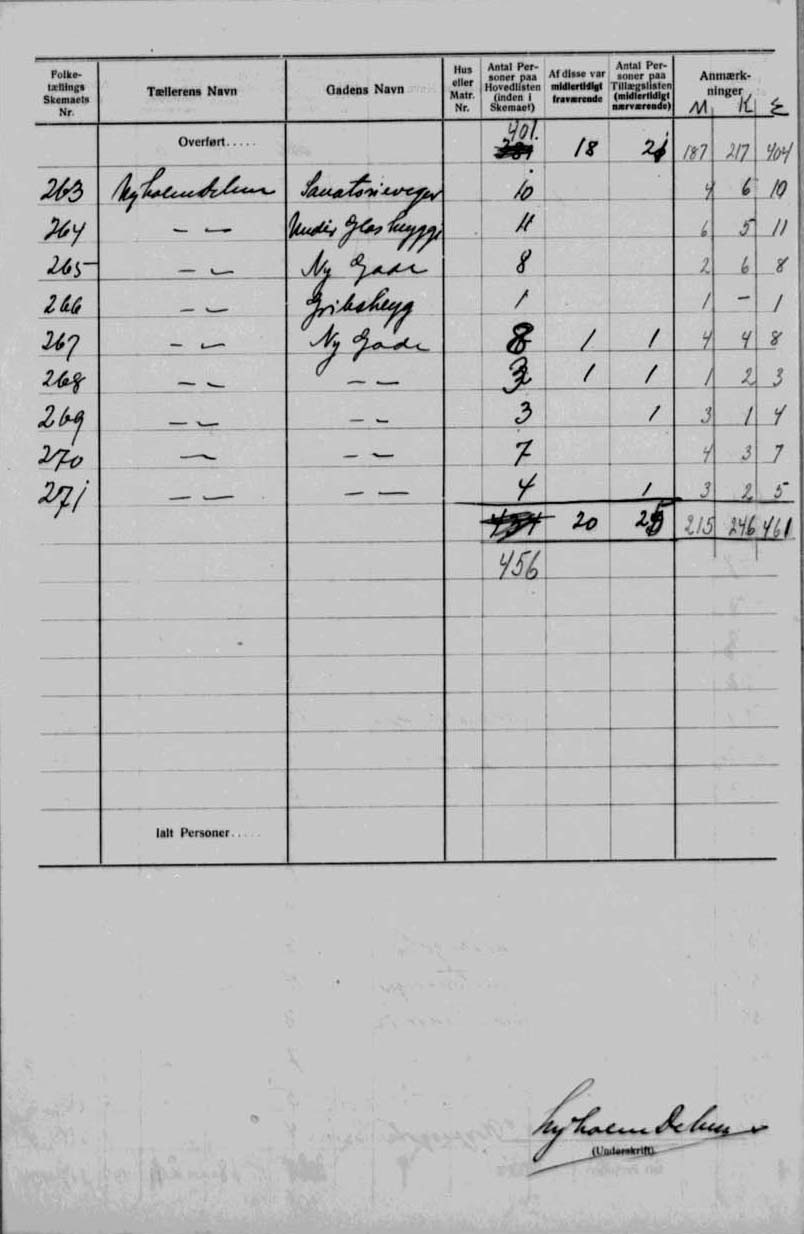 Folke-tællings Skemaets Nr. Tællerens Navn Gadens Navn Hus eller Matr. Nr. Antal Personer paa Hovedlisten (inden i Skemaet) Af disse var midlertidigt fraværende Antal Personer paa Tillægslisten (midlertidigt nærværende) Anmærk-ninger
M K Σ
401.
Overført..... 18 21 187 217 404
263 10 4 6 10
264 11 6 5 11
265 — 〃 — Ny Gade 8 2 6 8
266 — 〃 — 1 1 — 1
267 — 〃 — Ny Gade 8 1 1 4 4 8
268 — 〃 — — 〃 — 3 1 1 1 2 3
269 — 〃 — — 〃 — 3 1 3 1 4
270 — 〃 — — 〃 — 7 4 3 7
271 — 〃 — — 〃 — 4 1 3 2 5
20 25 215 246 461
456
Ialt Personer.....
(Underskrift).